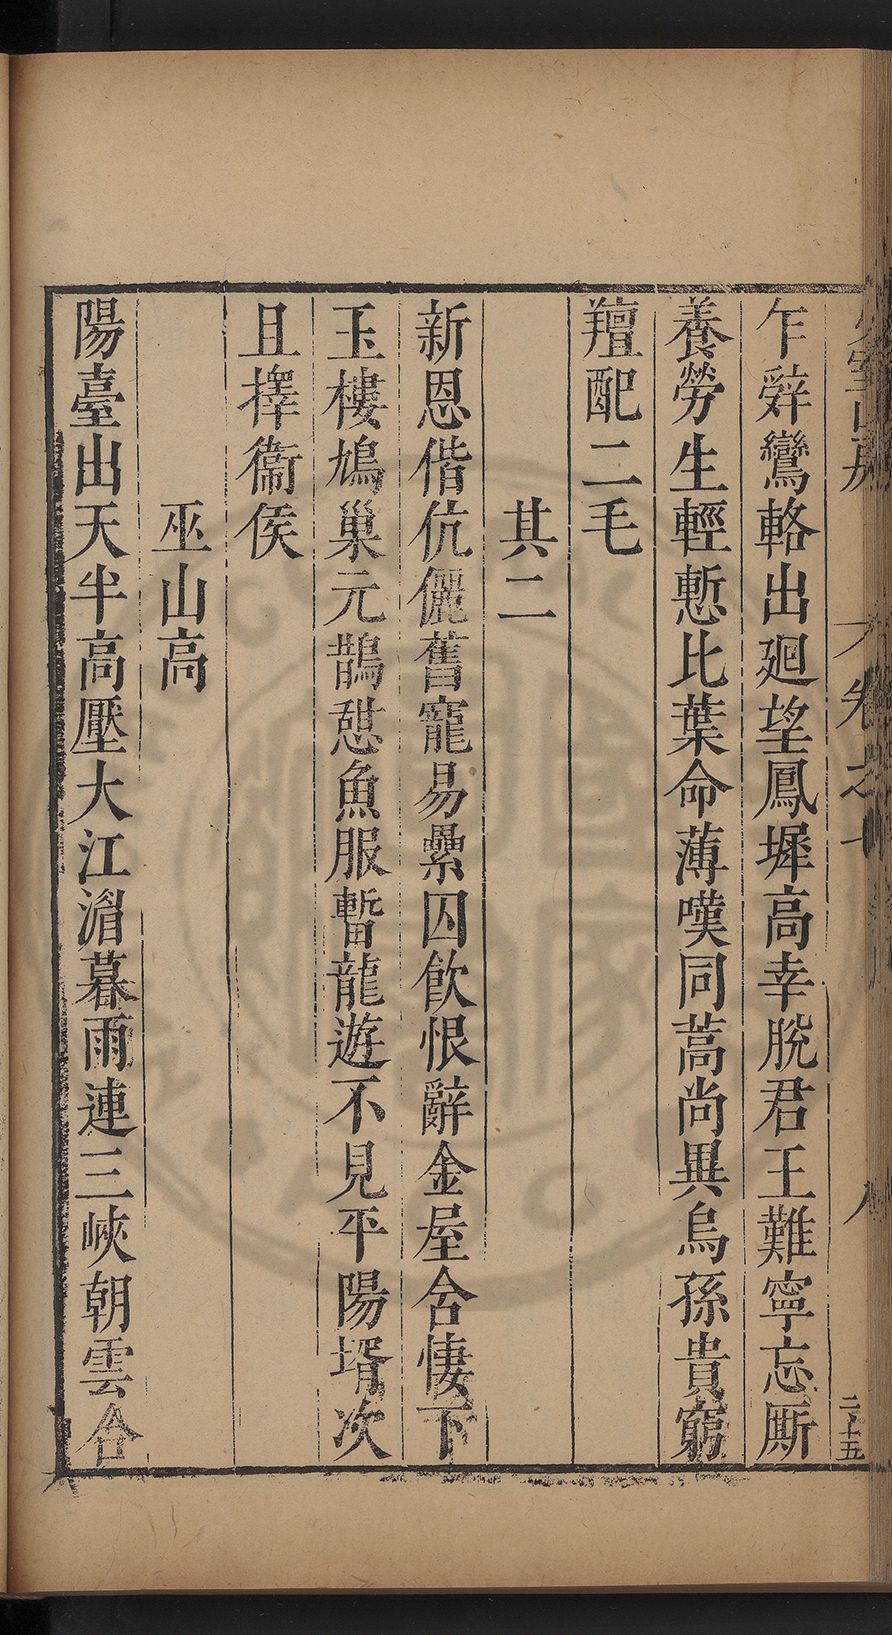 少室山房 卷之十 八 二十五
乍辤鸞輅出廻望鳳墀高幸脫君王難寧忘厮
養勞生輕慙比葉命薄嘆同蒿尚異烏孫貴窮
羶配二毛
其二
新恩偕伉儷舊寵易纍囚飲恨辭金屋含悽下
玉樓鳩巢元鵲憇魚服暫龍遊不見平陽壻次
且擇衞侯
巫山高
陽臺出天半高壓大江湄暮雨連三峽朝雲合